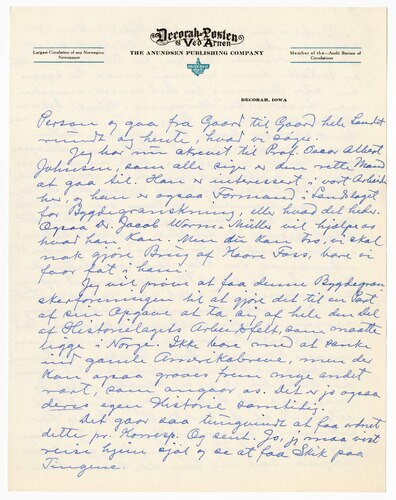 Decorah-Posten
Ved Arnen
THE ANUNDSEN PUBLISHING COMPANY
Largest Circulation of any Norwegian
Newspaper
Member of the—Audit Bureau of
Circulations
DECORAH, IOWA
Person og gaa fra Gaard til Gaard hele Landet
rundt og hente, hvad vi søger.
Jeg har nu skrevet til Prof. Oscar Albert
Johnsen, som alle siger er den rette Mand
at gaa til. Han er interessert i vort Arbeide
her, og han er ogsaa Formand i Landslaget
for Bygdegranskning, eller hvad det heder.
Ogsaa Dr. Jacob Worm-Müller vil hjælpe os
hvad han kan. Men du kan tro, vi skal
nok gjøre Brug af Haavn Fars, bare vi
faar fat i ham.
Jeg vil prøve at faa denne Bygdegran-
skerforeningen til at gjøre det til en Part
af sin Opgave at ta sig af hele den Del
af Historielagets Arbeidsfelt, som maatte
ligge i Norge. Ikke bare med at sanke
ind gamle Amerikabreve, men der
kan ogsaa graves frem mye andet
rart, som angaar os. Det er jo ogsaa
deres egen Historie samtidig.
Det gaar saa tungvindt at faa ordnet
dette pr. Korresp. Og sent. Jo, jeg maa vist
reise hjem sjøl og se at faa Skik paa
Tingene.